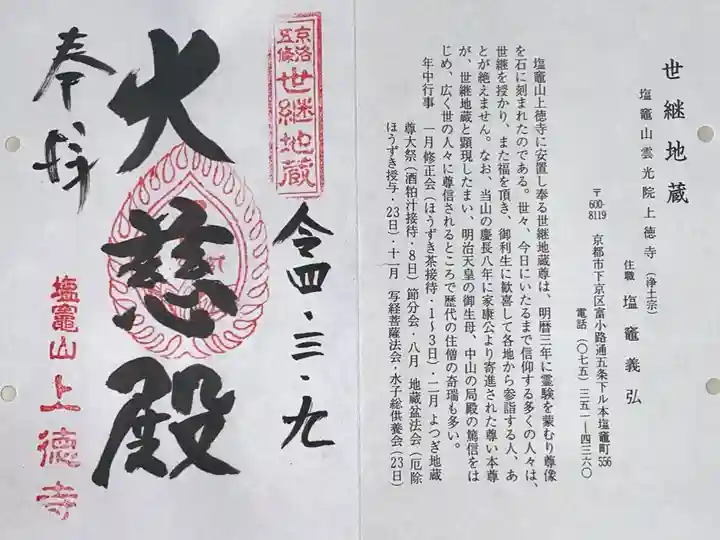 世継地蔵
塩竈山雲光院上徳寺（浄土宗）
住職 塩竈義弘
〒600-8119 京都市下京区富小路通五条下ル本塩竈町556
電話（〇七五）三五一―四三六〇
塩竈山上徳寺に安置し奉る世継地蔵尊は、明暦三年に霊験を蒙むり尊像
を石に刻まれたのである。世々、今日にいたるまで信仰する多くの人々は、
世継を授かり、また福を頂き、御利生に歓喜して各地から参詣する人、あ
とが絶えません。なお、当山の慶長八年に家康公より寄進された尊い本尊
が、世継地蔵と顕現したまい、明治天皇の御生母、中山の局殿の篤信をは
じめ、広く世の人々に尊信されるところで歴代の住僧の奇瑞も多い。
年中行事 一月修正会（ほうずき茶接待・1〜3日）・二月 よつぎ地蔵
尊大祭（酒粕汁接待・8日）節分会・八月 地蔵盆法会（厄除
ほうずき授与・23日）・十一月 写経菩薩法会・水子総供養会（23日）
京洛
五條
世継地蔵
令四・三・九
大慈殿
奉拝
塩竈山上徳寺